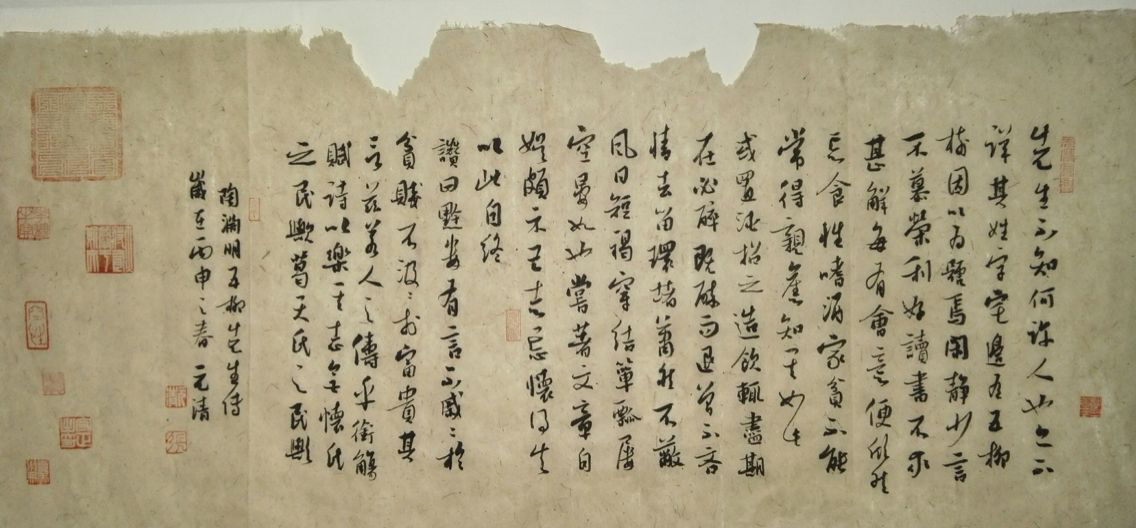 先生不知何许人也亦不
详其姓字宅边有五柳
树因以为号焉闲静少言
不慕荣利好讀書不求
甚解每有會意便欣然
忘食性嗜酒家贫不能
常得親舊知其如此
或置酒招之造飲輒盡期
在必醉既醉而退曾不吝
情去留環堵蕭然不蔽
風日短褐穿结箪瓢屡
空晏如也嘗著文章自
娱颇示己志忘懷得失
以此自终
讚曰黔娄有言不戚戚於
貧賤不汲汲於富貴其
言兹若人之儔乎銜觴
賦詩以樂其志無懷氏
之民歟葛天氏之民歟
陶渊明五柳先生传
嵗在丙申之春 元清